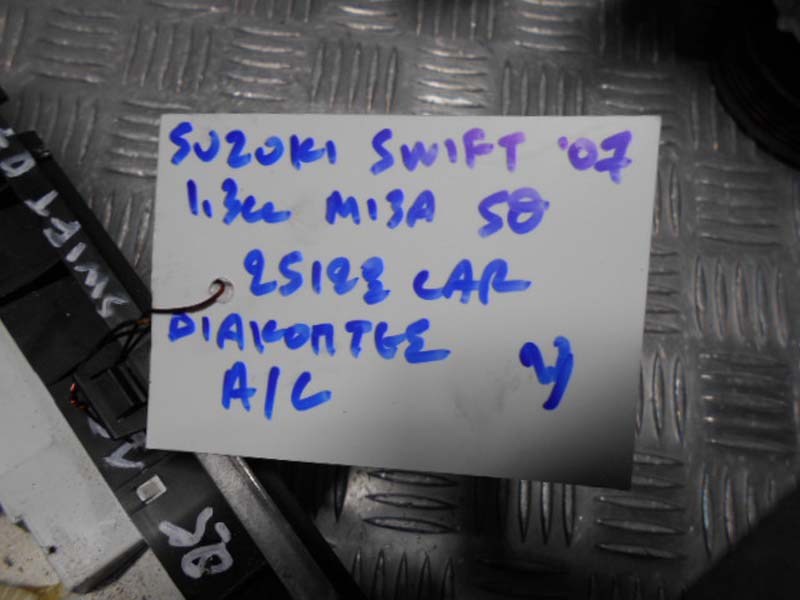 SUZUKI SWIFT '07
1.3cc M13A 5Θ
25122 CAR
ΔΙΑΚΟΠΤΕΣ
A/C
SWIFT 07